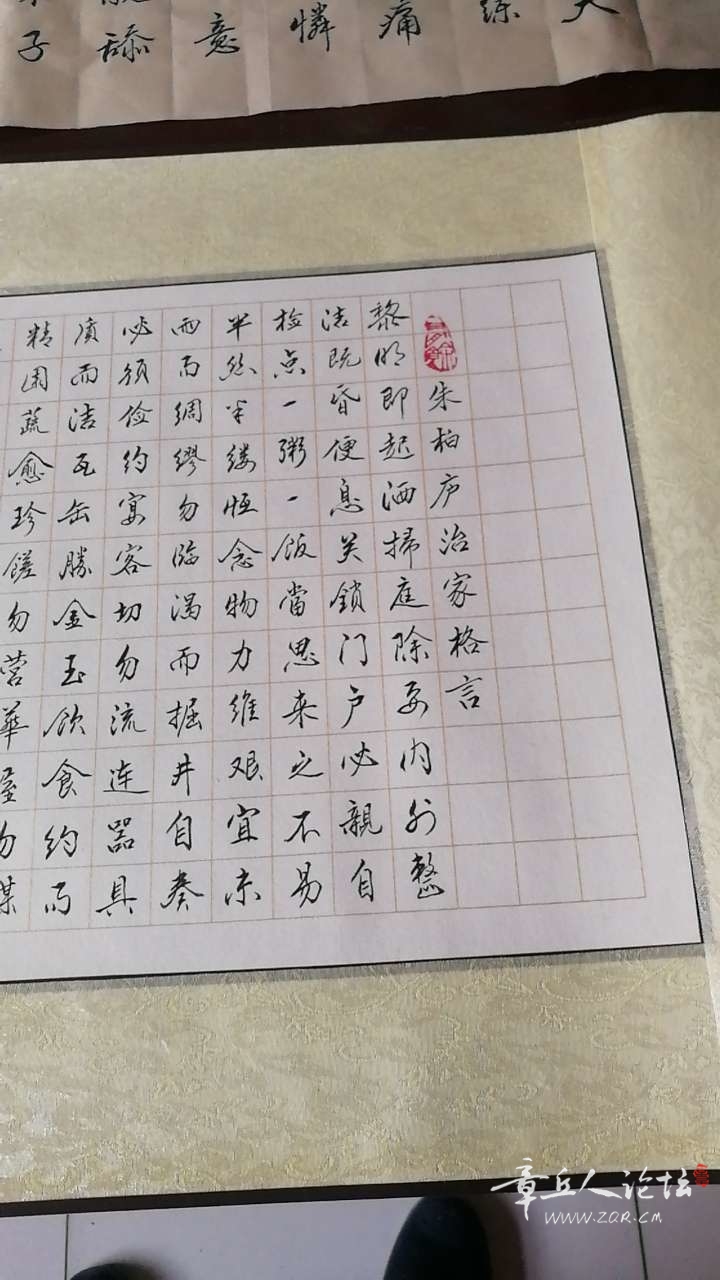 大
练
痛
憐
意
舔
子
朱柏庐治家格言
黎明即起洒掃庭除要内外整
洁既昏便息关鎖门户必親自
检点一粥一饭當思来之不易
半丝半缕恒念物力维艰宜未
雨而绸缪勿临渴而掘井自奉
必须俭约宴客切勿流连器具
质而洁瓦缶勝金玉飲食约而
精园蔬愈珍饈勿营華屋勿谋
章丘人论坛
WWW.ZQR.CM